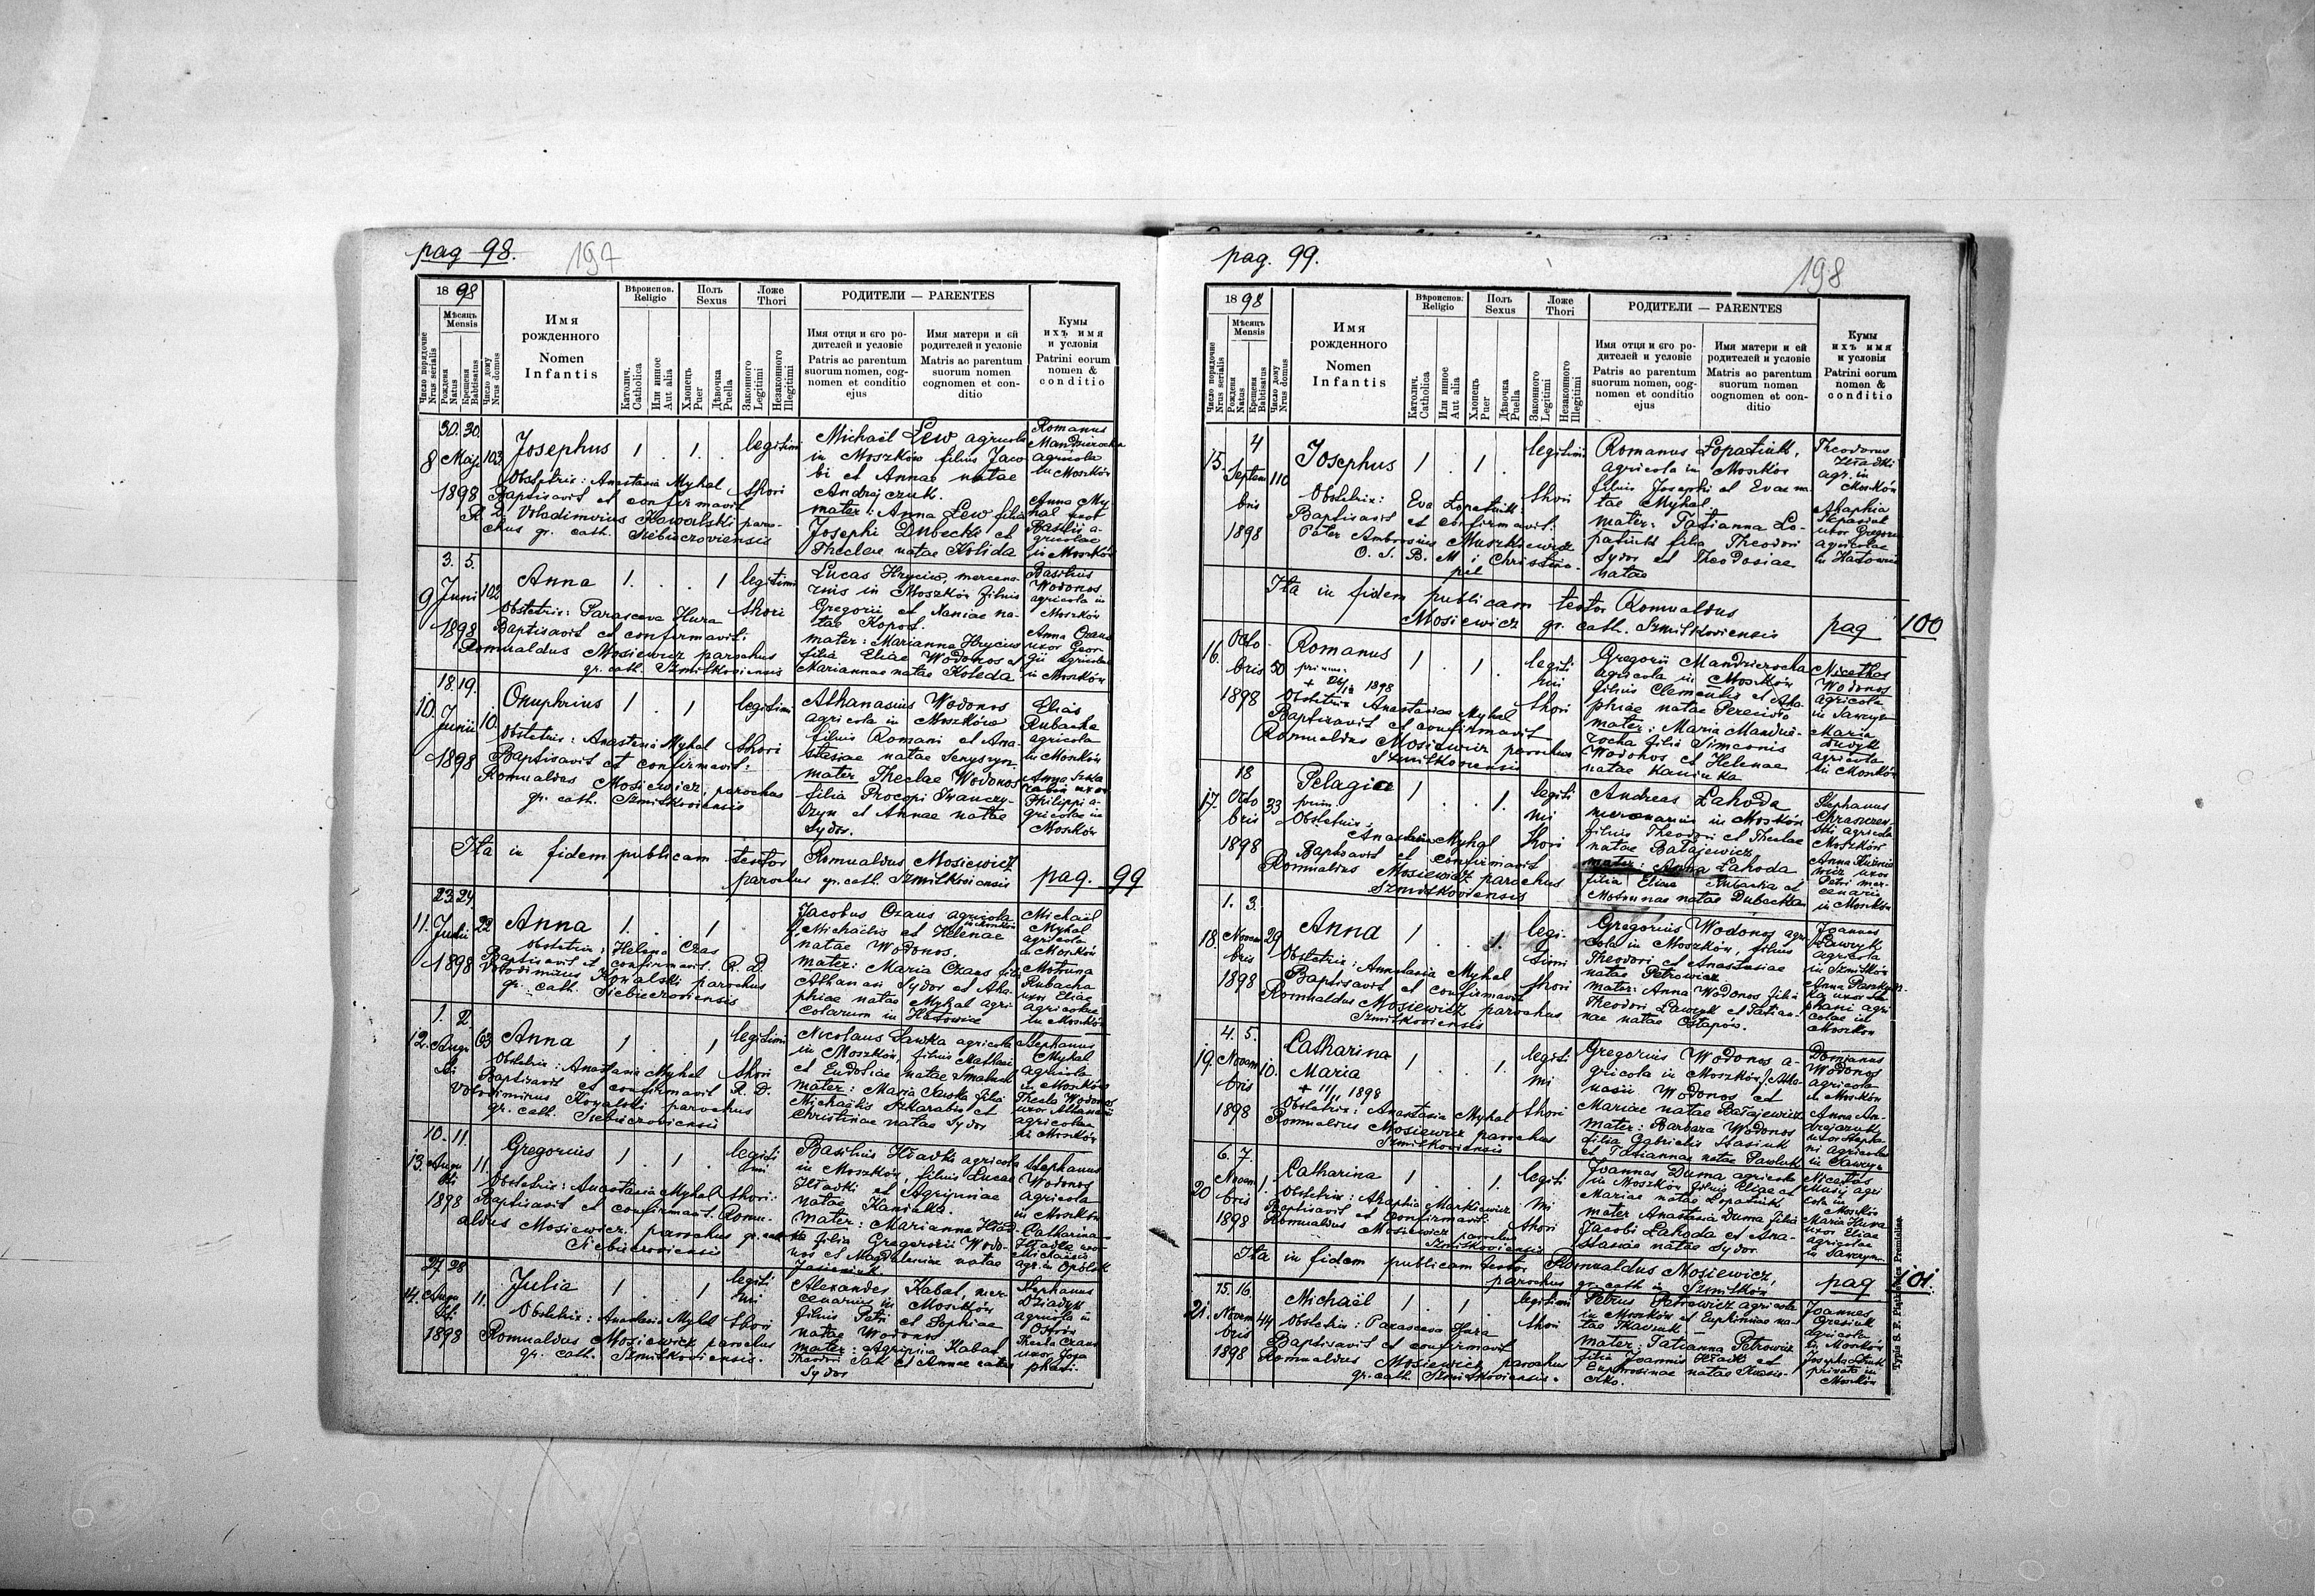 pag 98.
197
18 98
Мѣсяцъ
Mensis
Число порядочне
Nrus serialis
Рожденя
Natus
Крещеня
Babtisatus
Число дому
Nrus domus
Имя
рожденного
Nomen
Infantis
Вѣроиспов.
Religio
Католич.
Catholica
Или инное
Aut alia
Полъ
Sexus
Хлопецъ
Puer
Дѣвочка
Puella
Ложе
Thori
Законного
Legitimi
Незаконного
Illegitimi
РОДИТЕЛИ — PARENTES
Имя отця и єго ро-
дителей и условіе
Patris ac parentum
suorum nomen, cog-
nomen et conditio
ejus
Имя матери и єй
родителей и условіе
Matris ac parentum
suorum nomen
cognomen et con-
ditio
Кумы
ихъ имя
и условія
Patrini eorum
nomen &
conditio
30. 30.
8 Maji 103 Josephus 1 . 1 . legitimi
1898 thori
Obstetrix: Anastasia Myhal
Baptisavit et confirmavit
R. D. Vladimirus Kowalski paro-
chus gr. cath. Siebieczoviensis
Michaël Lew agricola
in Moszków filius Jaco
bi et Annae natae
Andrejczuk.
mater: Anna Lew filia
Josephi Dubecki et
Theclae natae Kolida
Romanus
Mandzirocha
agricola
in Moszków
Anna My
hal uxor
Basilii a-
gricolae
in Moszków
3. 5.
9 Juni 102 Anna 1 . . 1 legitimi
1898 thori
Obstetrix: Parasceva Hura
Baptisavit et confirmavit:
Romualdus Mosiewicz parochus
gr. cath. Szmitkoviensis
Lucas Hryciw, mercena-
rius in Moszków filius
Gregorii et Xaniae na-
tae Kopot.
mater: Marianna Hryciw
filia Eliae Wodonos et
Mariannae natae Koleda
Basilius
Wodonos
agricola in
Moszków
Anna Ozaus
uxor Geor-
gii agricolae
in Moszków
18. 19.
10. Junii 10. Onuphrius 1 . 1 legitimi
1898 thori
Obstetrix: Anastasia Myhal
Baptisavit et confirmavit:
Romualdus Mosiewicz, parochus
gr. cath. Szmitkoviensis
Athanasius Wodonos
agricola in Moszków
filius Romani et Ana-
stasiae natae Senyszyn
mater Theclae Wodonos
filia Procopi Iwanczy-
szyn et Annae natae
Sydor.
Elias
Rubacha
agricola
in Moszków
Anna Szka
rabiu uxor
Philippi a-
gricolae in
Moszków
Ita in fidem publicam testor Romualdus Mosiewicz
parochus gr. cath. Szmitkoviensis pag. 99
23. 24.
11. Julii 22 Anna 1 . . 1
1898
Obstetrix: Helena Czas
Baptisavit et confirmavit. R. D.
Volodimirus Kowalski parochus
gr. cath. Siebieczoviensis
Jacobus Ozaus agricola
in Moszków
f. Michaëlis et Helenae
natae Wodonos.
mater: Maria Ozaus filia
Athanasi Sydor et Aha-
phiae natae Myhal agri-
colarum in Hatowice
Michaël
Myhal
agricola
in Moszków
Motruna
Rubacha
uxor Eliae
agricolae
in Moszków
1. 2.
12. Augu 63 Anna 1 . . 1 legitimi
sti thori
Obstetrix: Anastasia Myhal
Baptisavit et confirmavit R. D.
Volodimirus Kowalski parochus
gr. cath. Siebieczoviensis
Nicolaus Sawka agricola
in Moszków, filius Mathaei
et Eudoxiae natae Smahal
mater: Maria Sawka filia
Michaëlis Szkarabiu et
Christinae natae Sydor
Stephanus
Myhal
agricola
in Moszków
Thecla Wodonos
uxor Athanasii
agricolae
in Moszków
10. 11.
13. Augu 11. Gregorius 1 . 1 . legiti
sti mi
1898 thori:
Obstetrix: Anastasia Myhal
Baptisavit et confirmavit. Romu-
aldus Mosiewicz, parochus gr. cath
Siebieczoviensis
Basilius Hładki agricola
in Moszków, filius Lucae
Hładki et Agripinae
natae Kaniuka.
mater: Marianna Hład-
ka filia Gregorii Wodo-
nos et Magdalenae natae
Jasieniuk.
Stephanus
Wodonos
agricola
in Moszków
Catharina
Hładka uxor
Michaëlis
agr. in Opolsk
27 28
14. Augu 11. Julia 1 . . 1 legiti
sti mi
1898 thori
Obstetrix: Anastasia Myhal
Romualdus Mosiewicz parochus
gr. cath. Szmitkoviensis.
Alexander Kabat, mer-
cenarius in Moszków
filius Petri et Sophiae
natae Wodonos
mater: Agripina Kabat
Theodori Sak et Annae natae
Sydor
Stephanus
Dziadyk
agricola in
Ostrów
Thecla Ozaus
uxor Jose
phati.
pag. 99.
198
18 98
Мѣсяцъ
Mensis
Число порядочне
Nrus serialis
Рожденя
Natus
Крещеня
Babtisatus
Число дому
Nrus domus
Имя
рожденного
Nomen
Infantis
Вѣроиспов.
Religio
Католич.
Catholica
Или инное
Aut alia
Полъ
Sexus
Хлопецъ
Puer
Дѣвочка
Puella
Ложе
Thori
Законного
Legitimi
Незаконного
Illegitimi
РОДИТЕЛИ — PARENTES
Имя отця и єго ро-
дителей и условіе
Patris ac parentum
suorum nomen, cog-
nomen et conditio
ejus
Имя матери и єй
родителей и условіе
Matris ac parentum
suorum nomen
cognomen et con-
ditio
Кумы
ихъ имя
и условія
Patrini eorum
nomen &
conditio
4
15. Septem 110 Josephus 1 . 1 . legitimi
bris thori
1898
Obstetrix: Eva Lopatiuk.
Baptisavit et confirmavit:
Pater Ambrosius Muszkiewicz
O. S. B. M. i Christino-
pil
Romanus Łopatiuk,
agricola in Moszków
filius Josephi et Evae na-
tae Myhal.
mater: Tatianna Lo-
patiuk filia Theodori
Sydor et Theodosiae
natae
Theodorus
Hładki
agr. in
Moszków
Ahaphia
uxor Gregorii
agricolae
in Hatowice
Ita in fidem publicam testor Romualdus
Mosiewicz gr. cath. Szmitkoviensis pag 100
16. Octo- 50 Romanus 1 . 1 . legiti
bris mi
1898 thori
primus.
+ 26/12 1898
Obstetrix Anastasia Myhal
Baptisavit et confirmavit
Romualdus Mosiewicz parochus
Szmitkoviensis
Gregorii Mandzierocha
agricola in Moszków
filius Clementis et Aha-
phiae natae
mater: Maria Mandzie-
rocha filia Simeonis
Wodonos et Helenae
natae Kaniuka
Nicethas
Wodonos
agricola
in Sawczyn
Maria
agricola
in Moszków
18
17. Octo 33 Pelagia 1 . . 1. legiti
bris mi
1898 thori
prim.
Obstetrix.
Anastasia Myhal
Baptisavit et confirmavit
Romualdus Mosiewicz parochus
Szmitkoviensis
Andreas Lahoda
mercenarius in Moszków
filius Theodori et Theclae
natae Bałajewicz
mater: Anna Lahoda
filia Eliae Rubacha et
Motrunae natae Dubecka
Stephanus
Chraszczew-
ski agricola
Moszków
Anna
uxor
Petri mer-
cenarii
in Moszków
1. 3.
18. Novem 29 Anna 1 . . 1. legi-
bris timi
1898 thori
Obstetrix: Anastasia Myhal
Baptisavit et confirmavit
Romualdus Mosiewicz parochus
Szmitkoviensis
Gregorius Wodonos agri
cola in Moszków, filius
Theodori et Anastasiae
natae Petrowicz
mater: Anna Wodonos filia
Theodori Lawryk et Tatian-
nae natae Ostapów.
Joannes
Lawryk
agricola
in Szmitków
Anna
ka uxor Ste
phani agri
colae in
Moszków
4. 5.
19. Novem 10. Catharina 1 . . 1. legiti
bris Maria mi
1898 thori
+ 11/11 1898
Obstetrix: Anastasia Myhal
Romualdus Mosiewicz parochus
Szmitkoviensis
Gregorius Wodonos a-
gricola in Moszków f. Atha-
nasii Wodonos et
Mariae natae Bałajewicz
mater: Barbara Wodonos
filia Gabrielis Stasiuk
et Tatiannae natae Pawluk
Domianus
Wodonos
agricola
in Moszków
Anna An-
drejczuk
uxor Stepha
ni agricolae
in Sawczyn
6. 7.
20 Novem 1. Catharina 1 . . 1. legiti
bris mi
1898 thori
Obstetrix: Ahaphia Markiewicz
Baptisavit et confirmavit:
Romualdus Mosiewicz parochus
Szmitkoviensis
Joannes Duma agricola
in Moszków filius Eliae et
Mariae natae Lopatiuk
mater Anastasia Duma filia
Jacobi Lahoda et Ana-
stasiae natae Sydor
Nicetas
Musij agri
cola in
Moszków
Maria Hura
uxor Eliae
agricolae
in Sawczyn
Ita in fidem publicam testor Romualdus Mosiewicz,
parochus gr. cath in Szmitków pag 101.
15. 16.
21. Novem 44 Michaël 1 . 1 . legitimi
bris thori
1898
Obstetrix: Parasceva Hura
Baptisavit et confirmavit
Romualdus Mosiewicz parochus
gr. cath. Szmitkoviensis.
Petrus Petrowicz agricola
in Moszków et Euphimiae na-
tae Tkaciuk
mater: Tatianna Petrowicz
filia Joannis Hładki et
Euphrosinae natae
Joannes
agricola
in Moszków
privata in
Moszków
Typis S. F. Piątkiewicz Przemisliae.